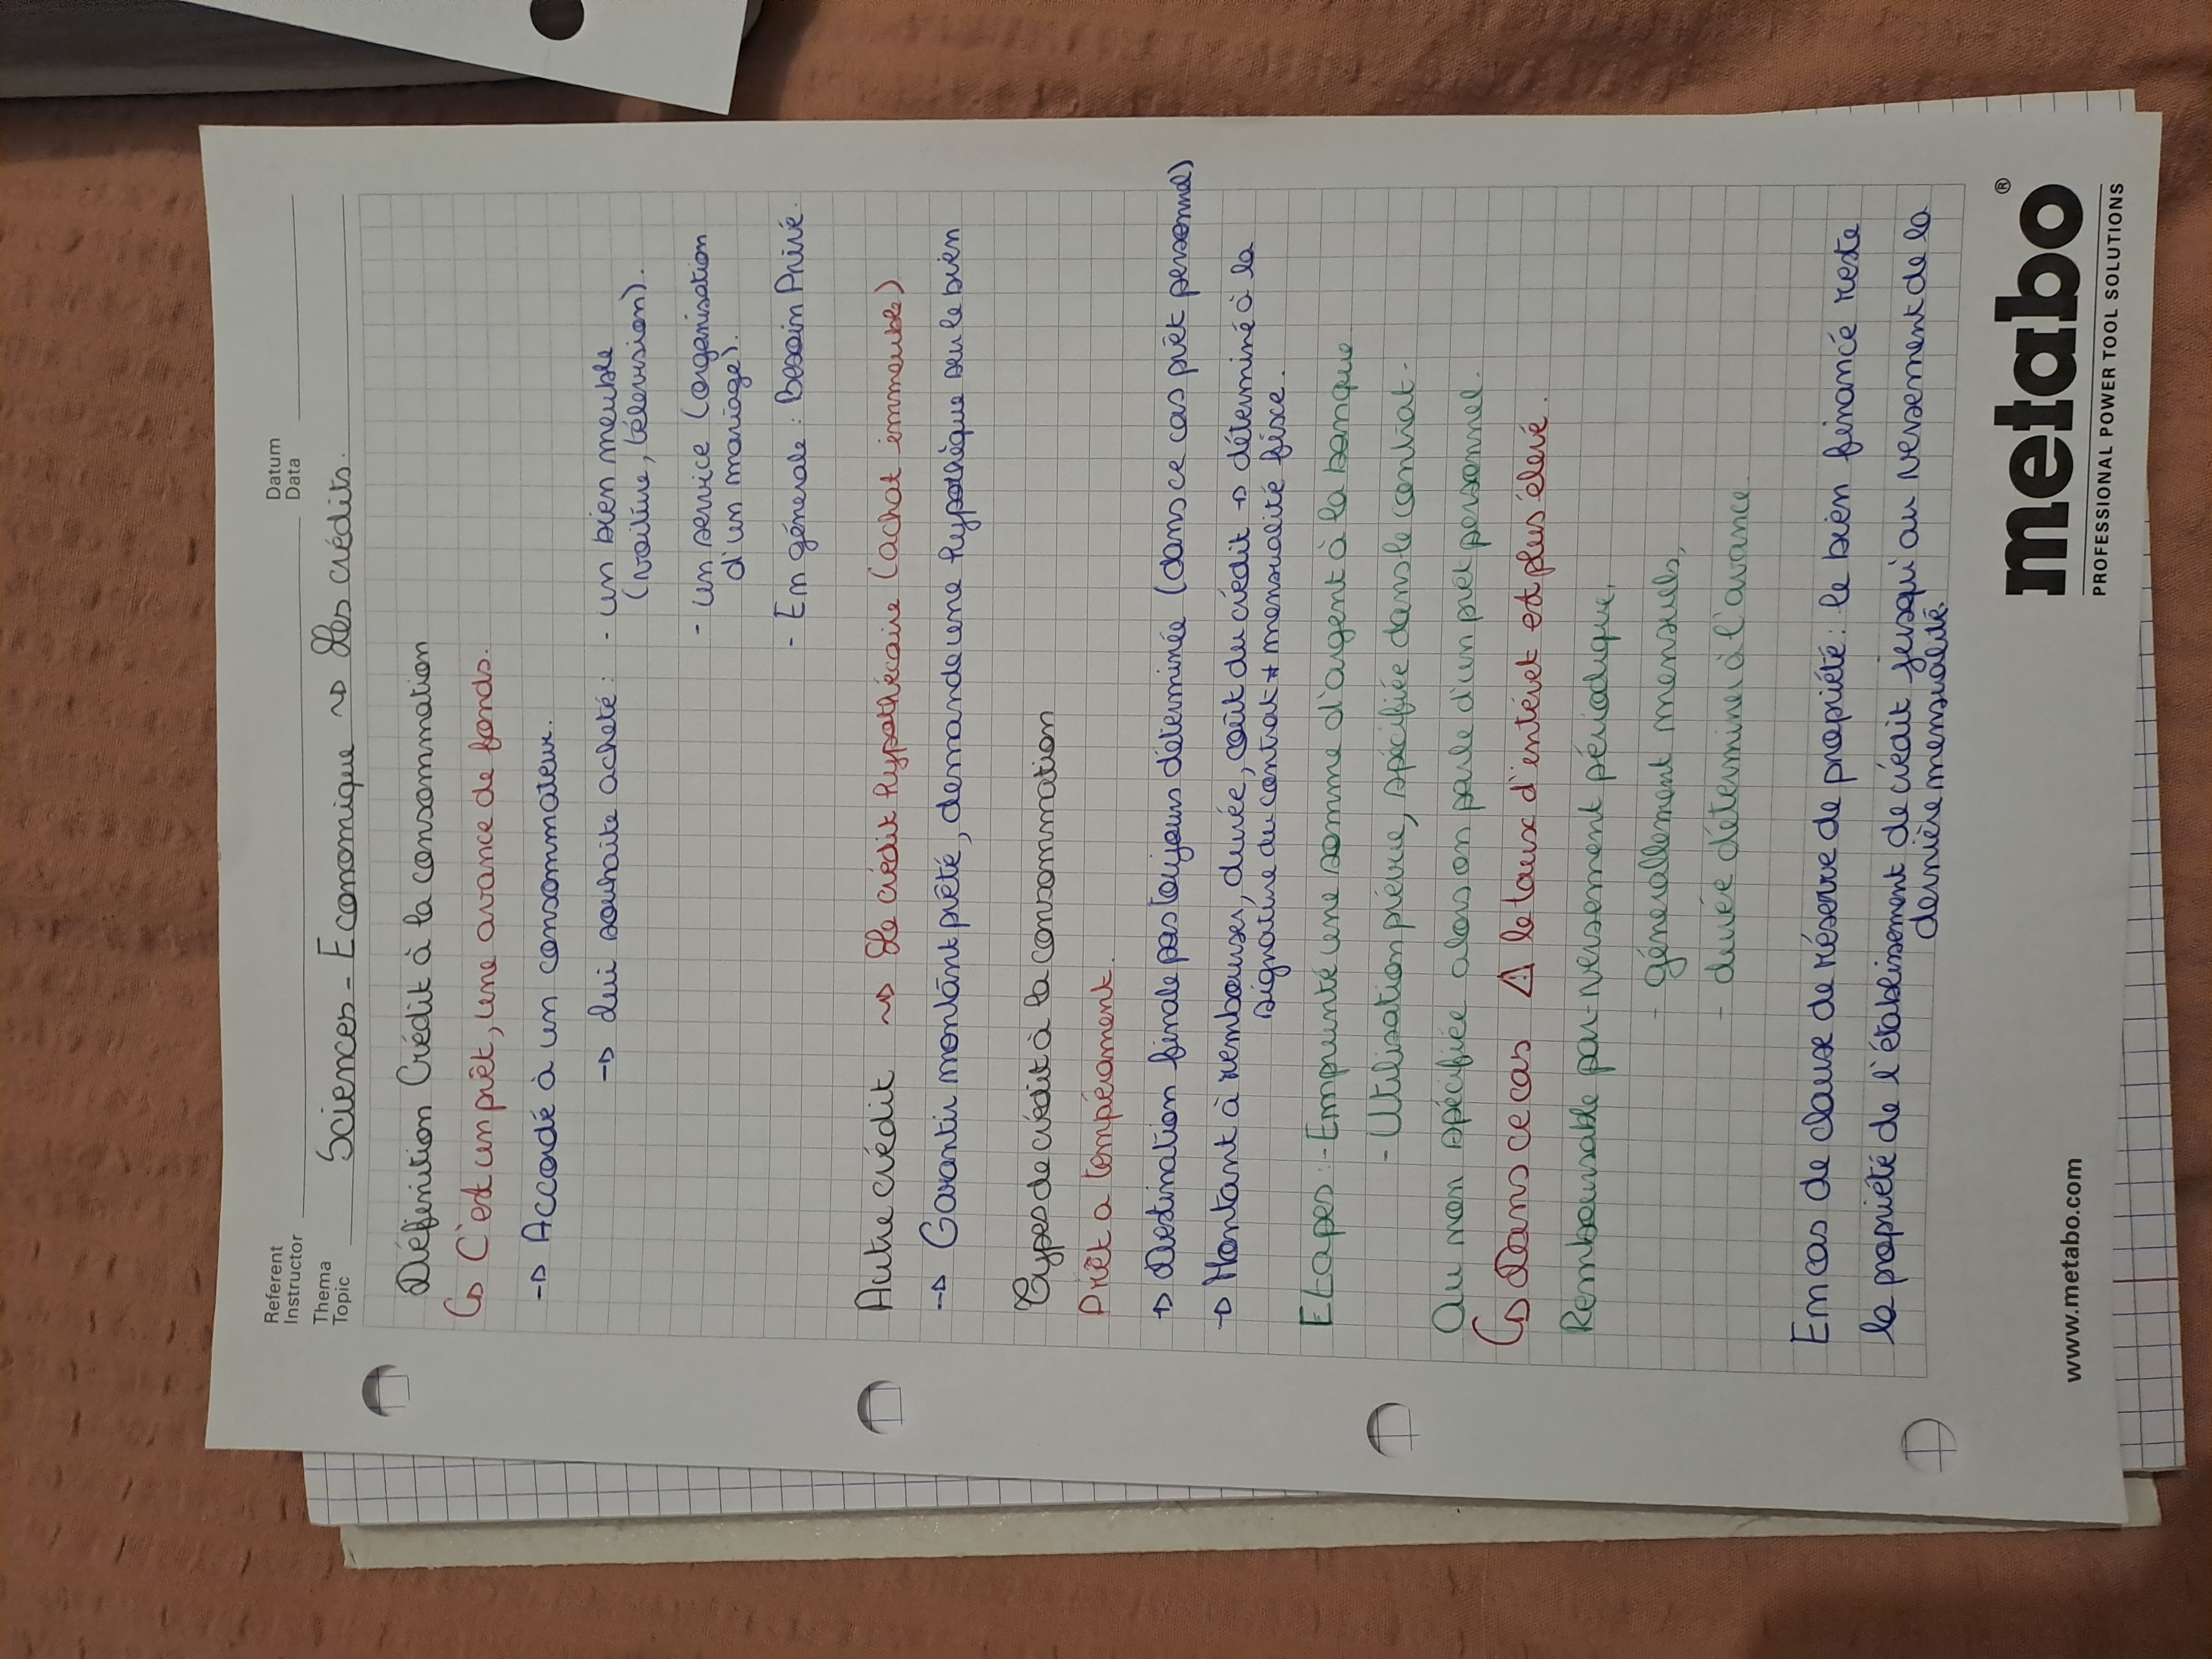 Referent
Instructor
Datum
Data
Thema
Topic
Sciences - Economique ~> Les crédits.
Définition Crédit à la consommation
↳ C'est un prêt, une avance de fonds.
→ Accordé à un consommateur.
→ Lui souhaite acheté : - un bien meuble
(voiture, télévision).
- un service (organisation
d'un mariage).
- En génerale : Besoin Privé.
Autre crédit ~> Le crédit hypothécaire (achat immeuble)
→ Garantir montant prêté, demande une hypothèque sur le bien
Types de crédit à la consommation
Prêt a tempérament.
→ Destination finale pas toujours déterminée (dans ce cas prêt personnel)
→ Montant à rembourser, durée, coût du crédit → déterminé à la
signature du contrat + mensualité fixe.
Etapes : - Emprunté une somme d'argent à la banque.
- Utilisation prévue, spécifiée dans le contrat.
Ou non spécifiée alors on parle d'un prêt personnel.
↳ Dans ce cas ⚠ le taux d'intéret est plus élevé.
Remboursable par - versement périodique,
- génerallement mensuels,
- durée déterminer à l'avance.
En cas de clause de réserve de propiété : le bien financé reste
la propiété de l'établissement de crédit jusqu'au versement de la
dernière mensualité.
www.metabo.com
metabo®
PROFESSIONAL POWER TOOL SOLUTIONS